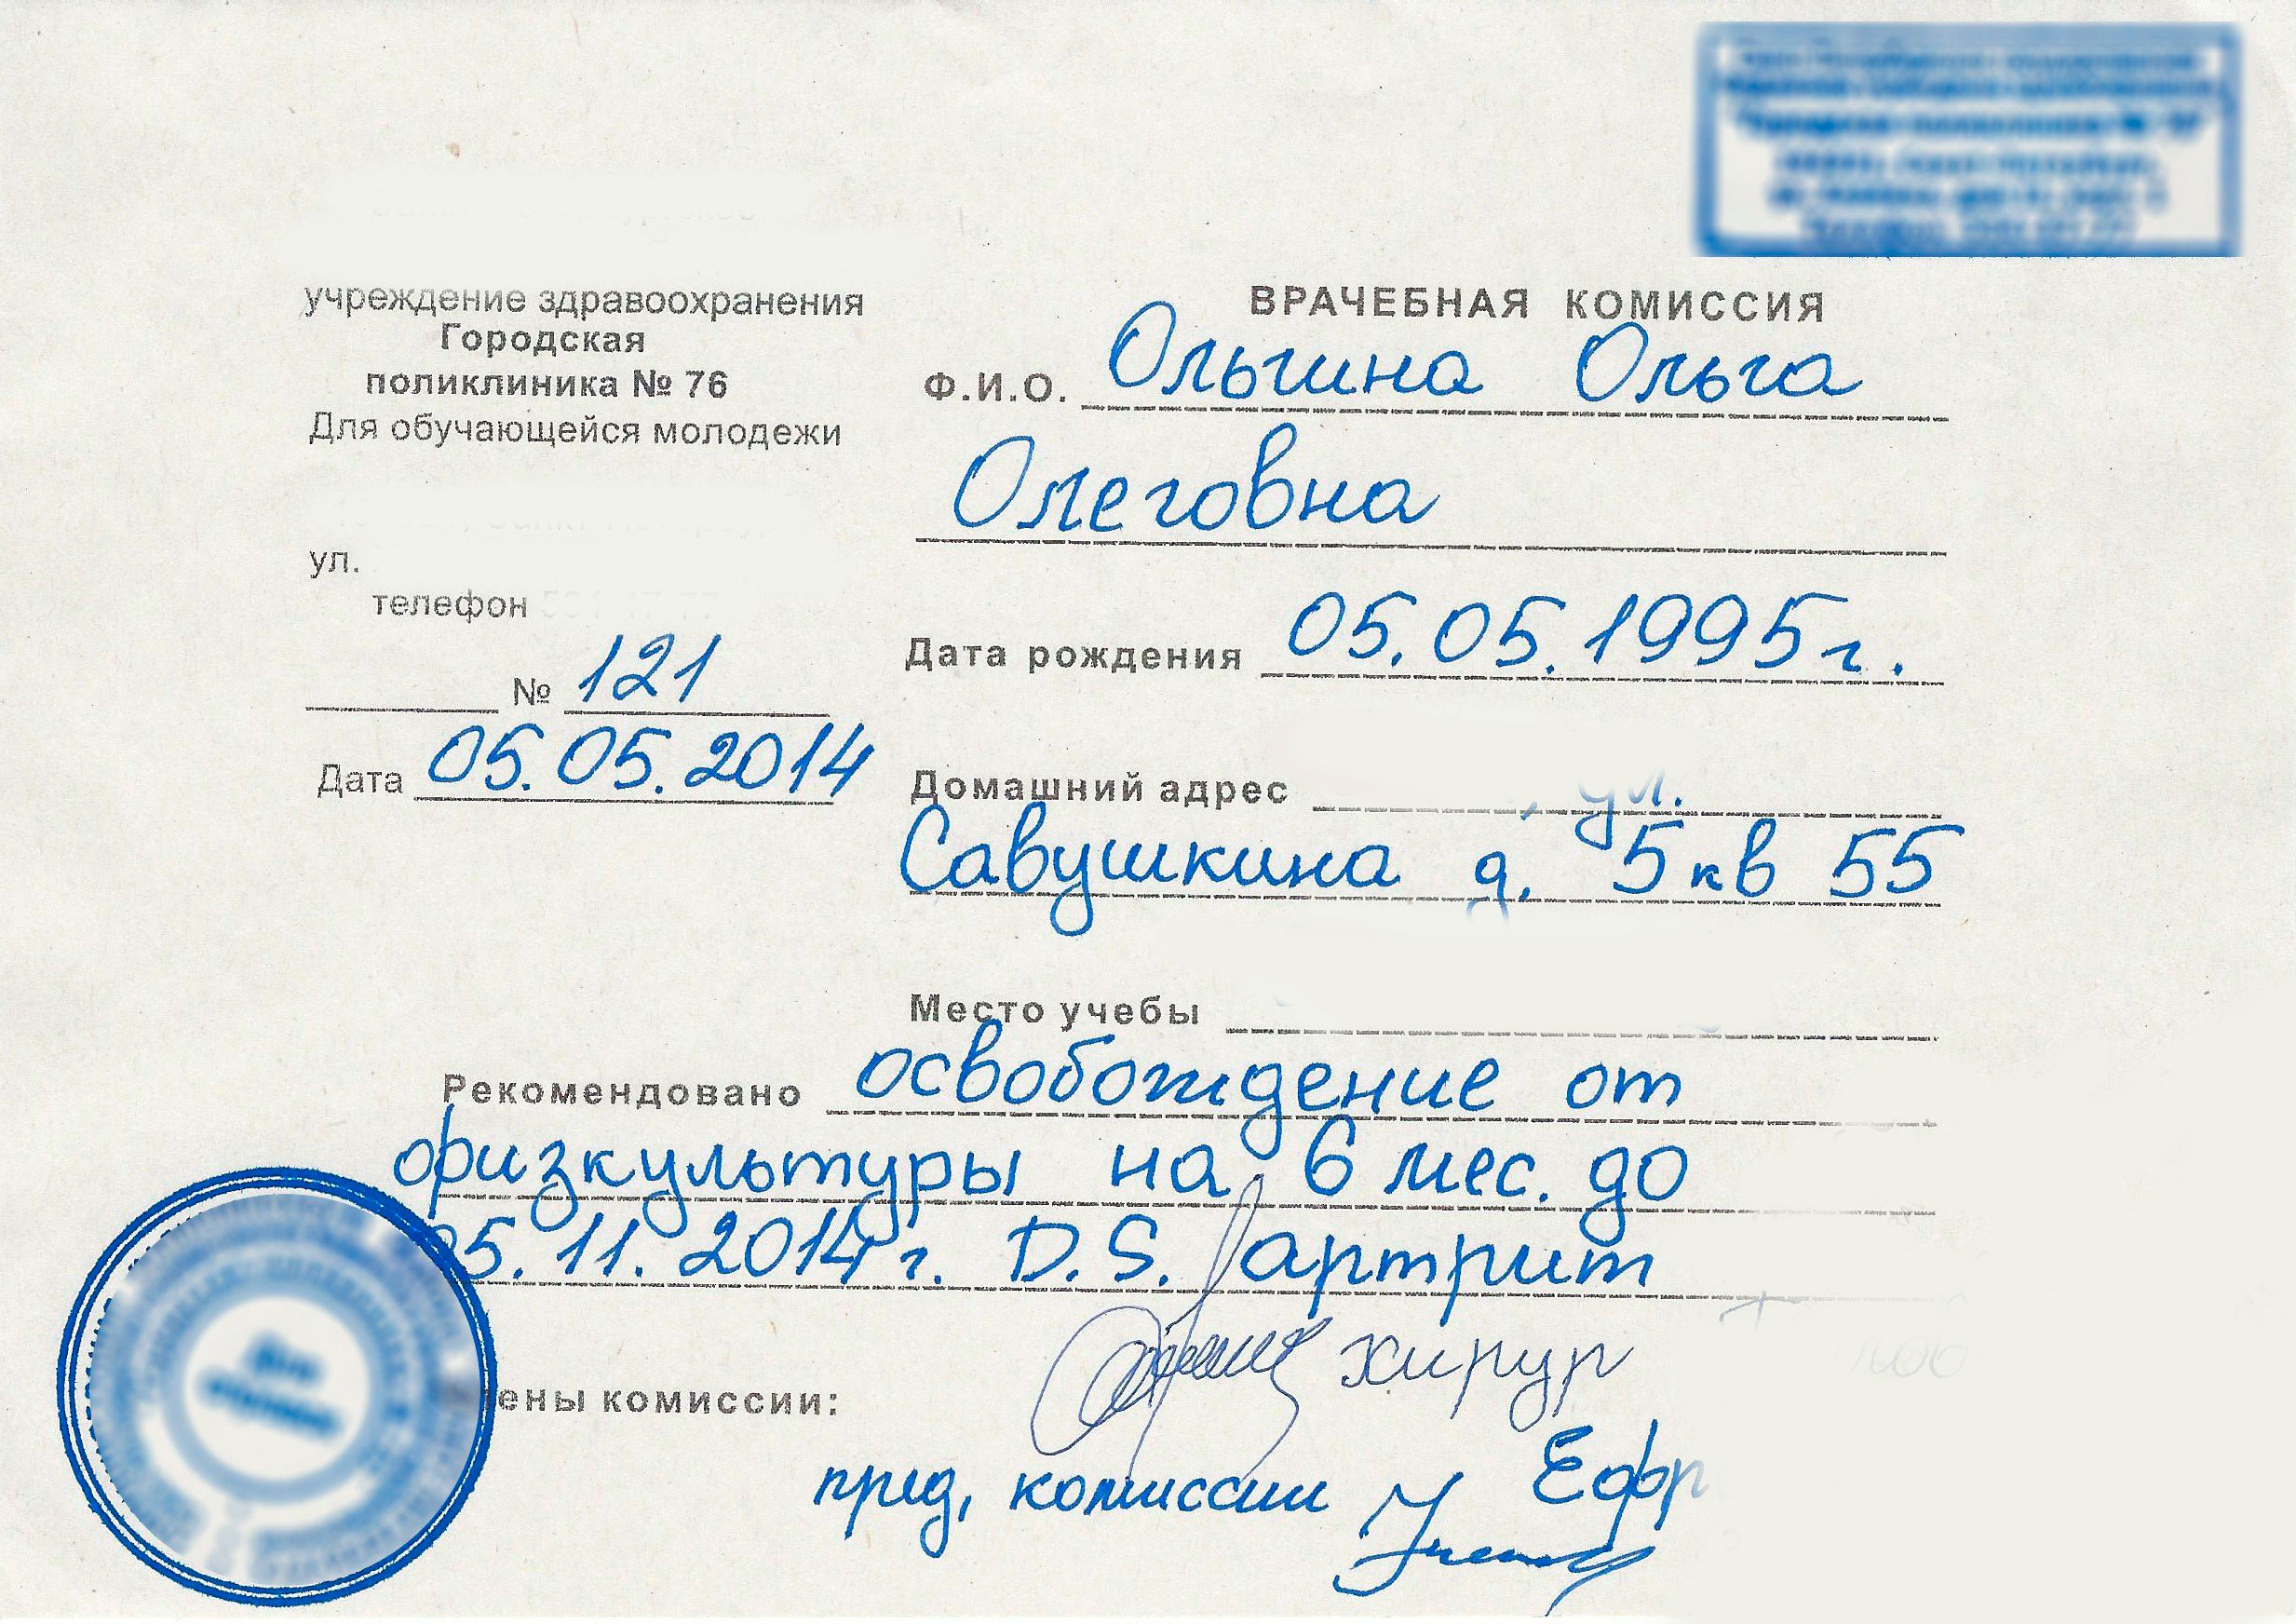 учреждение здравоохранения
Городская
поликлиника № 76
Для обучающейся молодежи
ул.
телефон
№ 121
Дата 05.05.2014
ВРАЧЕБНАЯ КОМИССИЯ
Ф.И.О. Ольгина Ольга
Олеговна
Дата рождения 05.05.1995г.
Домашний адрес , ул.
Савушкина д. 5 кв 55
Место учебы
Рекомендовано освобождение от
физкультуры на 6 мес. до
05.11.2014г. D.S. артрит
хирур
ены комиссии:
пред, комиссии Ефр